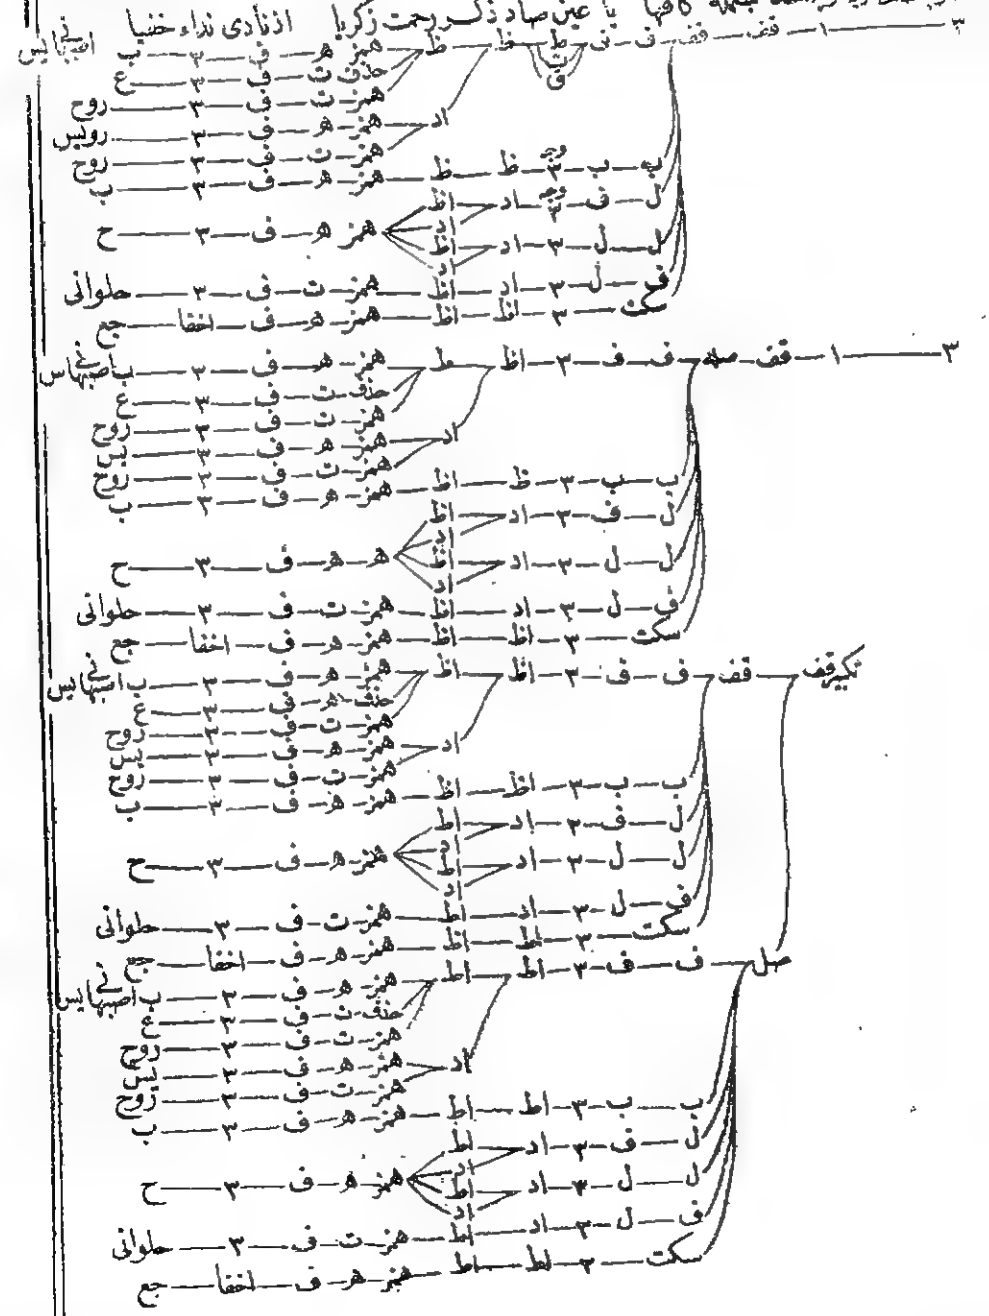 بسمله كافها يا عين صاد ذكر رحمت زكريا اذنادى نداء خفيا
٣ — ١ — قف — قف — ف — فى — ط — ظ — ظ — همز — ھ — ف — ٣ — ب اصبهانى يس
ف حذف — ت — ف — ٣ — ع
همز — ت — ف — ٣ — روح
اد — همز — ھ — ف — ٣ — رويس
همز — ت — ف — ٣ — روح
ب — ب — ٣ وجه — ظ — ظ — همز — ھ — ف — ٣ — ب
ل — ف — ٣ وجه — اد — اظ
اد
همز — ھ — ف — ٣ — ح
ل — ل — ٣ — اد — اظ
اد
ف — ل — ٣ — اد — اظ — همز — ت — ف — ٣ — حلوانى
سكت — ٣ — اظ — اظ — همز — ھ — ف — اخفا — جع
٣ — ١ — قف — صله — ف — ف — ٣ — اظ — ظ — همز — ھ — ف — ٣ — ب اصبهانى يس
حذف — ت — ف — ٣ — ع
همز — ت — ف — ٣ — روح
اد — همز — ھ — ف — ٣ — يس
همز — ت — ف — ٣ — روح
ب — ب — ٣ — ظ — اظ — همز — ھ — ف — ٣ — ب
ل — ف — ٣ — اد — اظ
اد
ل — ل — ٣ — اد — اظ — ھ — ھ — ف — ٣ — ح
اد
ف — ل — ٣ — اد — اظ — همز — ت — ف — ٣ — حلوانى
سكت — ٣ — اظ — اظ — همز — ھ — ف — اخفا — جع
تكبير قف — قف — ف — ف — ٣ — اظ — اظ — همز — ھ — ف — ٣ — ب اصبهانى يس
حذف — ھ — ف — ٣ — ع
همز — ت — ف — ٣ — روح
اد — همز — ھ — ف — ٣ — يس
همز — ت — ف — ٣ — روح
ب — ب — ٣ — اظ — اظ — همز — ھ — ف — ٣ — ب
ل — ف — ٣ — اد — اظ
اد
ل — ل — ٣ — اد — اظ — همز — ھ — ف — ٣ — ح
اد
ف — ل — ٣ — اد — اظ — همز — ت — ف — ٣ — حلوانى
سكت — ٣ — اظ — اظ — همز — ھ — ف — اخفا — جع
صل — ف — ف — ٣ — اظ — اط — همز — ھ — ف — ٣ — ب اصبهانى يس
حذف — ت — ف — ٣ — ع
همز — ت — ف — ٣ — روح
اد — همز — ھ — ف — ٣ — يس
همز — ت — ف — ٣ — روح
ب — ب — ٣ — اط — اط — همز — ھ — ف — ٣ — ب
ل — ف — ٣ — اد — اط
اد
ل — ل — ٣ — اد — اط — همز — ھ — ف — ٣ — ح
اد
ف — ل — ٣ — اد — اط — همز — ت — ف — ٣ — حلوانى
سكت — ٣ — اط — اط — همز — ھ — ف — اخفا — جع